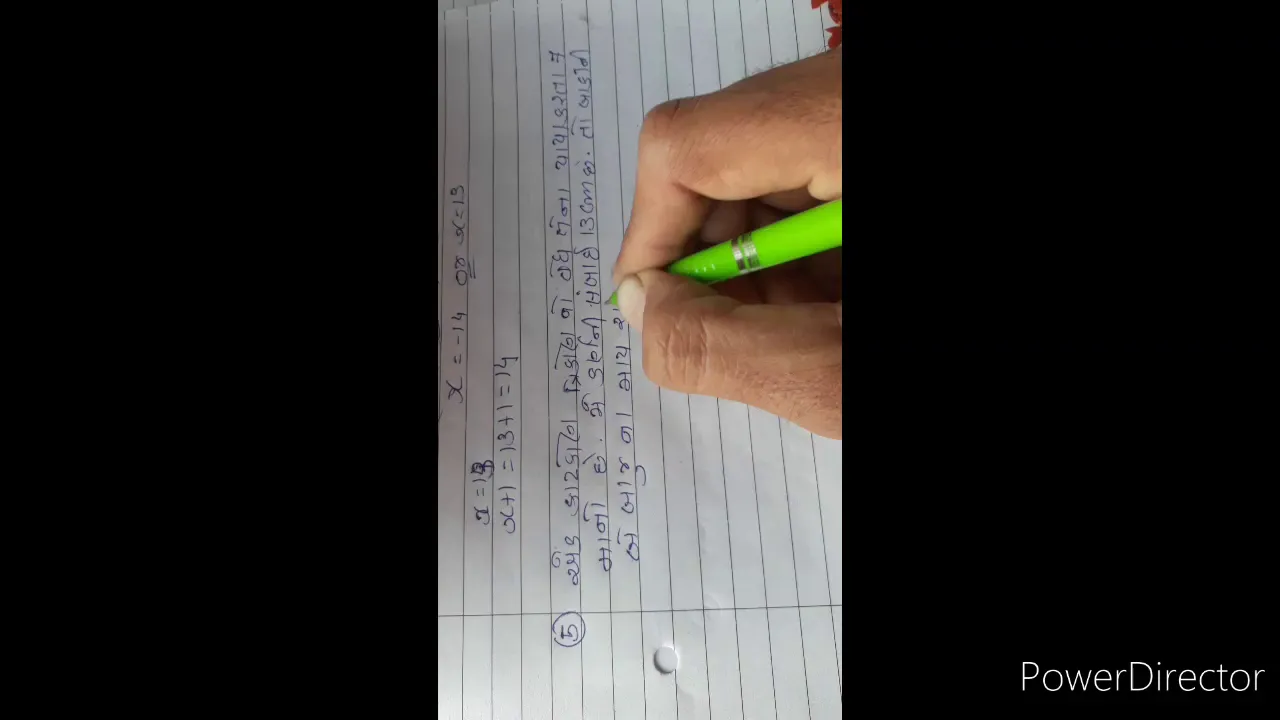 x = -14 or x = 13
x = 13
x+1 = 13+1 = 14
5 એક કાટકોણ ત્રિકોણ નો વેધ તેના પાયા કરતા 7
માનો છે. જો કર્ણની લંબાઈ 13 cm છે. તો બાકીની
બે બાજુ ના માપ શ
PowerDirector